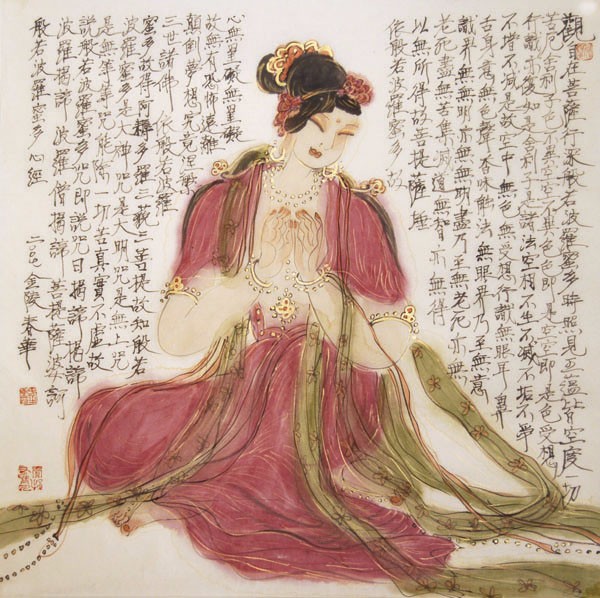 觀自在菩薩行深般若波羅蜜多時照見五蘊皆空度一切
苦厄舍利子色不異空空不異色色即是空空即是色受想
行識亦復如是舍利子是諸法空相不生不滅不垢不淨
不增不減是故空中無色無受想行識無眼耳鼻
舌身意無色聲香味觸法無眼界乃至無意
識界無無明亦無無明盡乃至無老死亦無
老死盡無苦集滅道無智亦無得
以無所得故菩提薩埵
依般若波羅蜜多故
心無罣礙無罣礙
故無有恐怖遠離
顛倒夢想究竟涅槃
三世諸佛依般若波羅
蜜多故得阿耨多羅三藐三菩提故知般若
波羅蜜多是大神咒是大明咒是無上咒
是無等等咒能除一切苦真實不虛故
說般若波羅蜜多咒即說咒曰揭諦揭諦
波羅揭諦波羅僧揭諦菩提薩婆訶
般若波羅蜜多心經
金陵春華